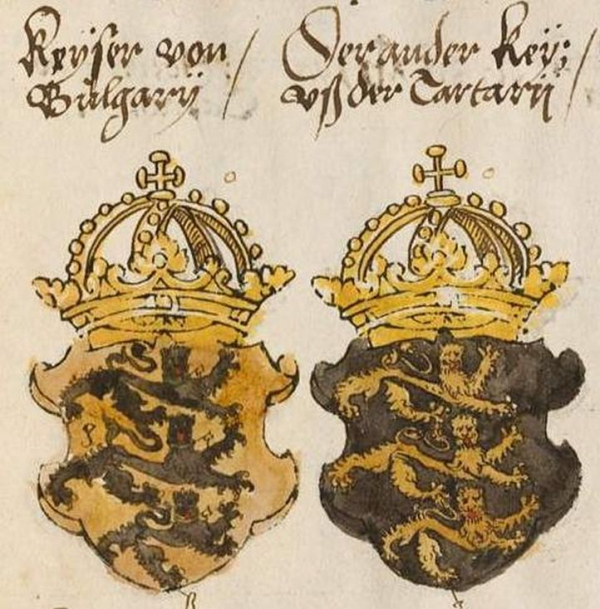 Keyser von
Bulgarij
Der ander Keÿ:
vß der Tartarij